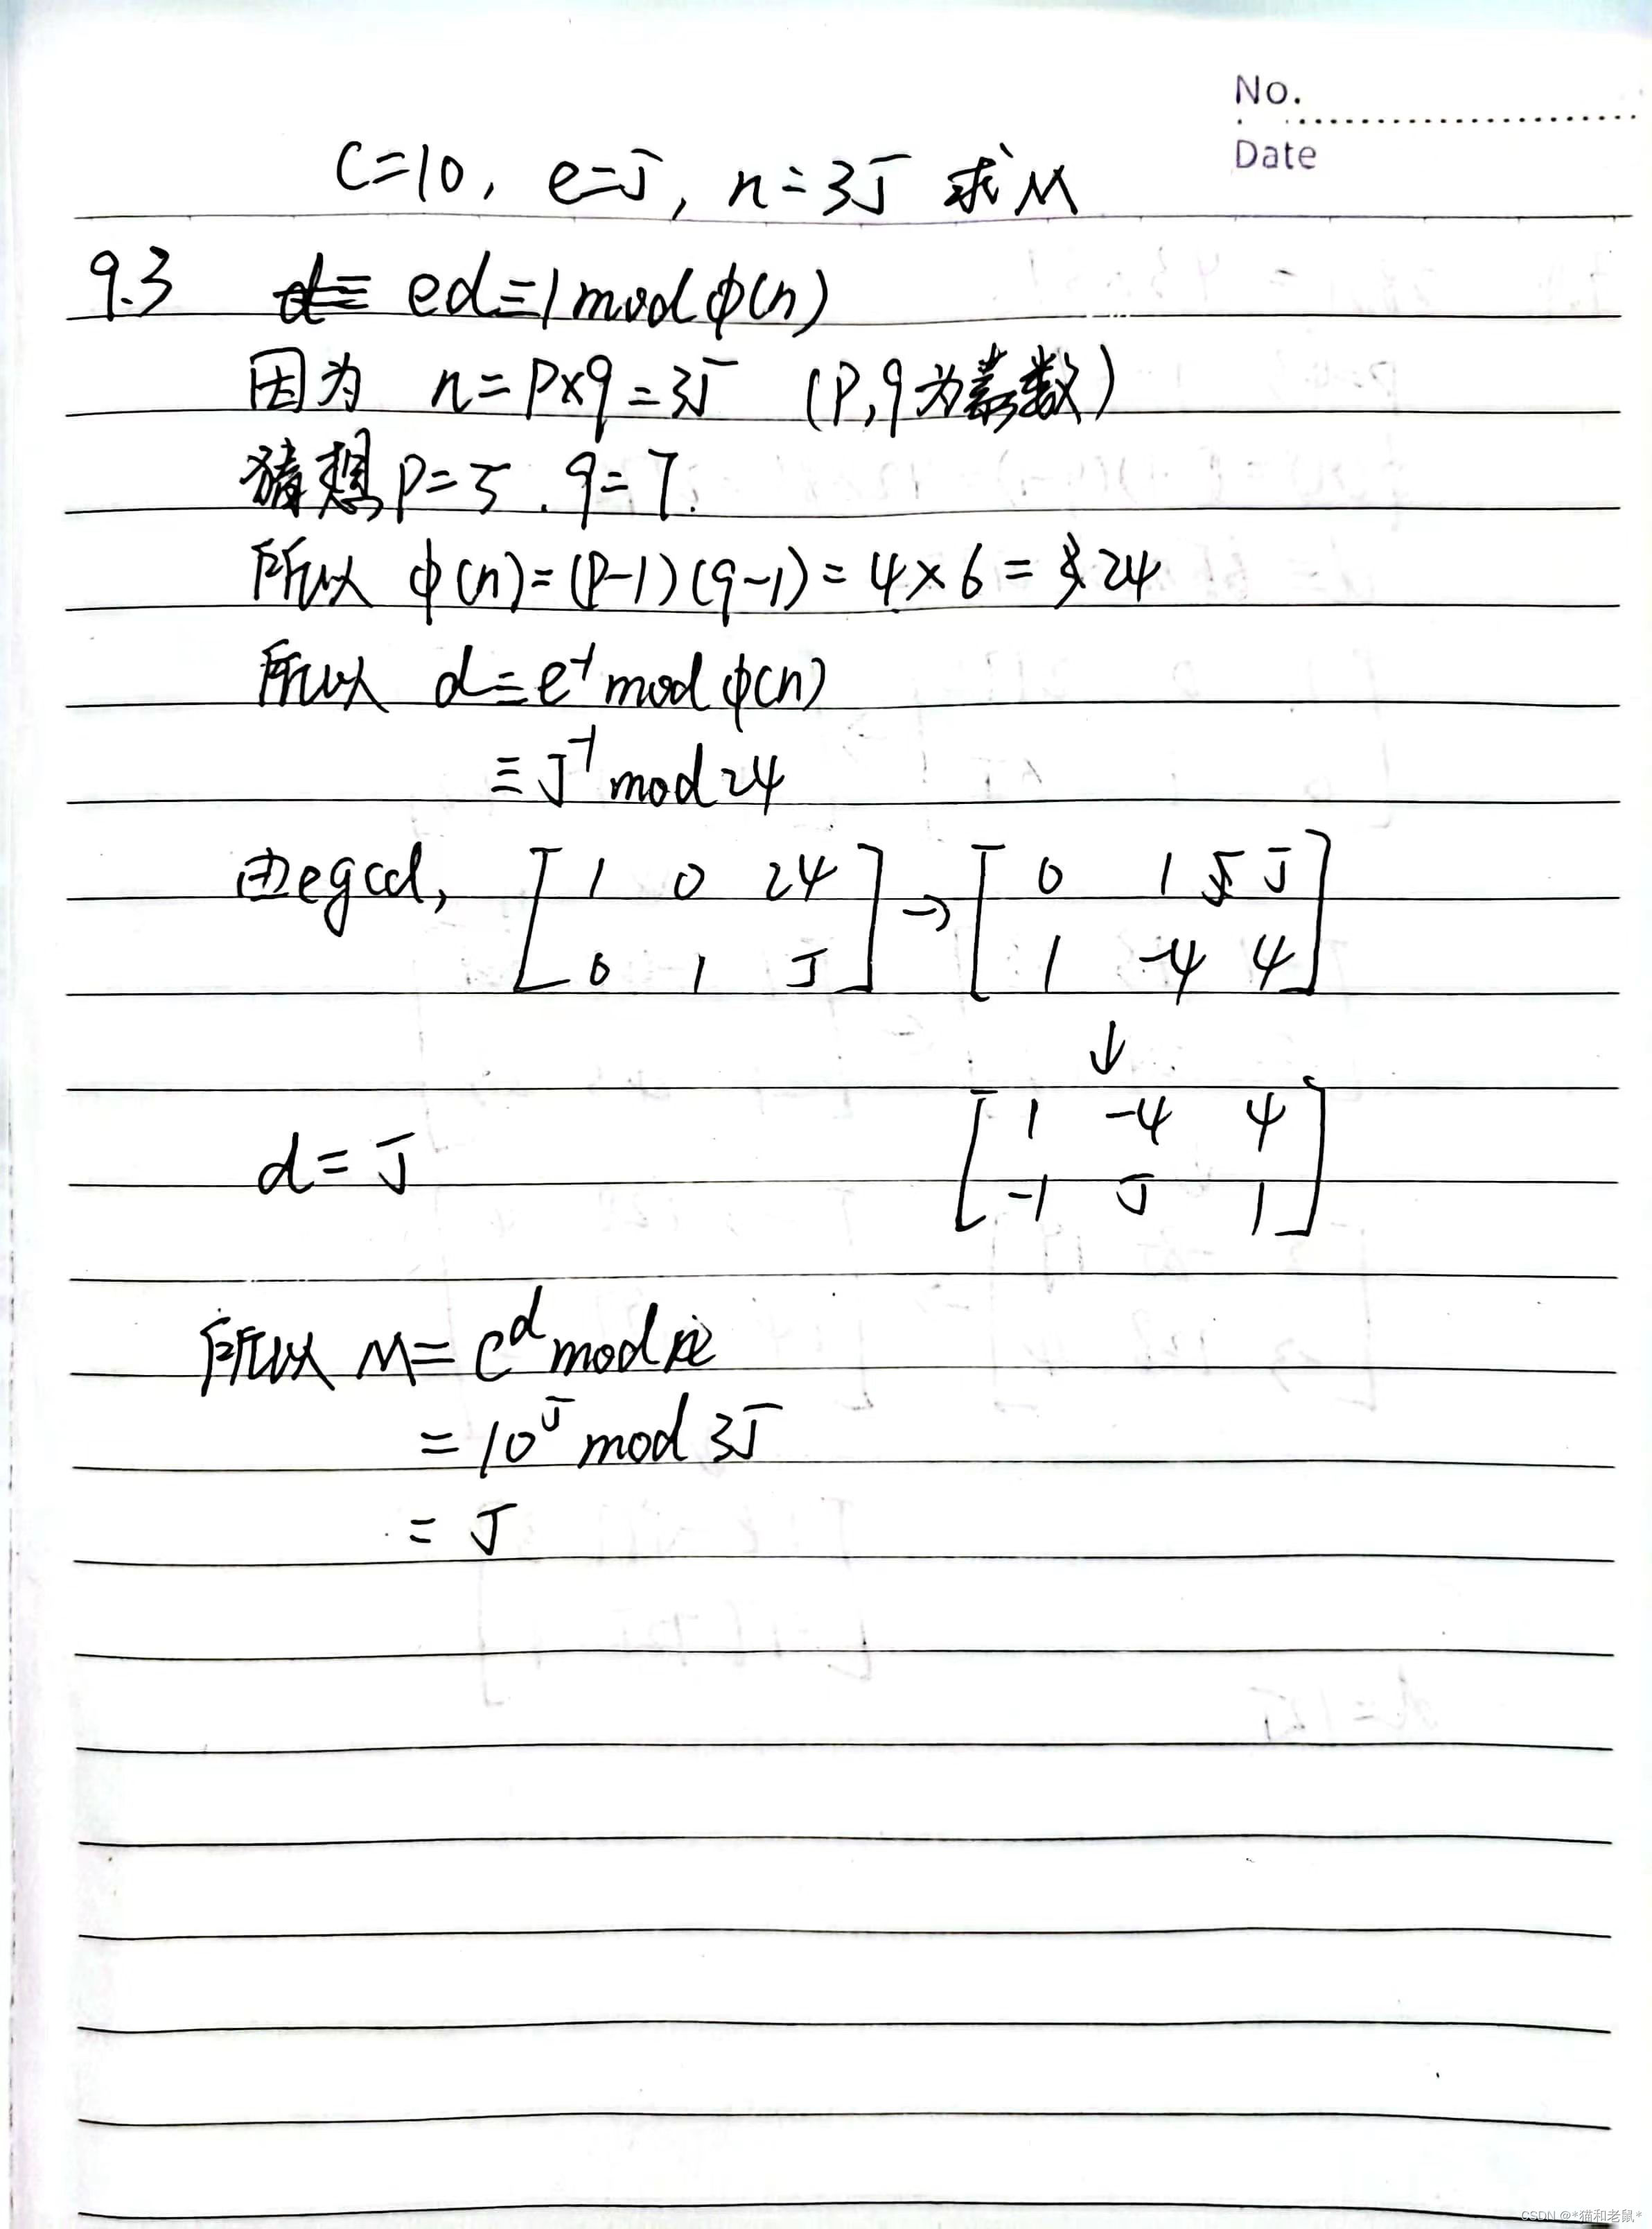 No.
Date
C=10, e=5, n=35 求M
9.3 d≡ ed≡1 mod φ(n)
因为 n=p×q=35 (p,q为素数)
猜想 p=5.q=7.
所以 φ(n)=(p-1)(q-1)=4×6=24
所以 d≡e⁻¹ mod φ(n)
≡5⁻¹ mod 24
由egcd, [1 0 24 → [0 1 5
0 1 5] 1 -4 4]
↓
[1 -4 4
d=5
-1 5 1]
所以 M=C^d mod n
=10^5 mod 35
=5
CSDN @*猫和老鼠*